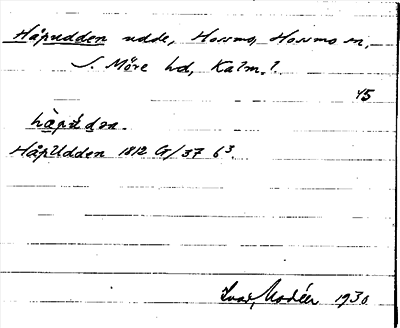 Håpudden udde, Hossmo, Hossmo sn,
S. Möre hd, Kalm. l.
45
håpúdən.
HåpUdden 1812 G/37 6³
Ivar Modéer 1930